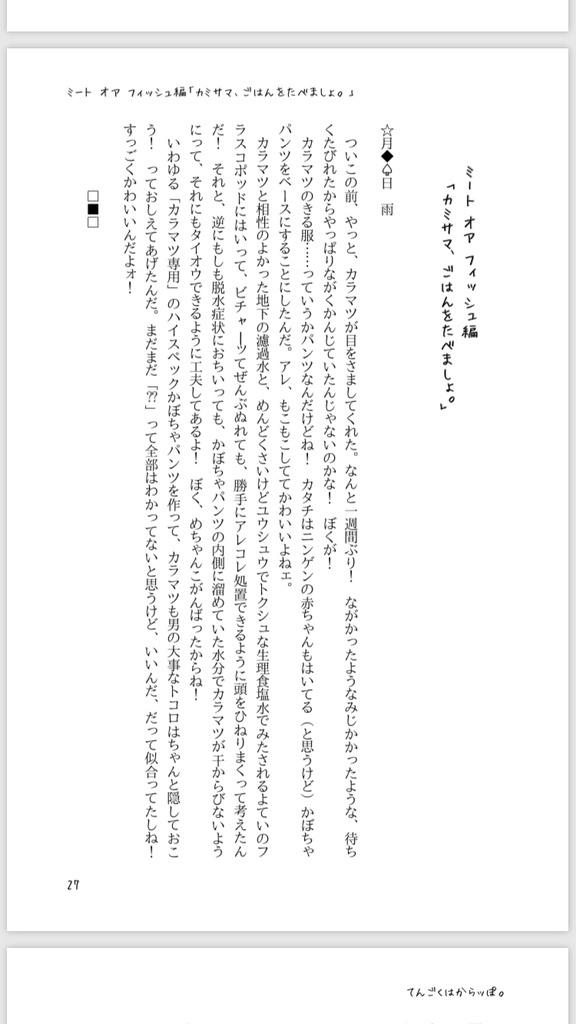 ミート オア フィッシュ編「カミサマ、ごはんをたべましょ。」
ミート オア フィッシュ編
「カミサマ、ごはんをたべましょ。」
☆月◆♤日　雨
　ついこの前、やっと、カラマツが目をさましてくれた。なんと一週間ぶり！　ながかったようなみじかかったような、待ち
くたびれたからやっぱりながくかんじていたんじゃないのかな！　ぼくが！
　カラマツのきる服……っていうかパンツなんだけどね！　カタチはニンゲンの赤ちゃんもはいてる（と思うけど）かぼちゃ
パンツをベースにすることにしたんだ。アレ、もこもこしててかわいいよねェ。
　カラマツと相性のよかった地下の濾過水と、めんどくさいけどユウシュウでトクシュな生理食塩水でみたされるよていのフ
ラスコポッドにはいって、ビチャーッてぜんぶぬれても、勝手にアレコレ処置できるように頭をひねりまくって考えたん
だ！　それと、逆にもしも脱水症状におちいっても、かぼちゃパンツの内側に溜めていた水分でカラマツが干からびないよう
にって、それにもタイオウできるように工夫してあるよ！　ぼく、めちゃんこがんばったからね！
　いわゆる「カラマツ専用」のハイスペックかぼちゃパンツを作って、カラマツも男の大事なトコロはちゃんと隠しておこ
う！　っておしえてあげたんだ。まだまだ「⁇」って全部はわかってないと思うけど、いいんだ、だって似合ってたしね！
すっごくかわいいんだよォ！
□■□
27
てんごくはからッぽ。